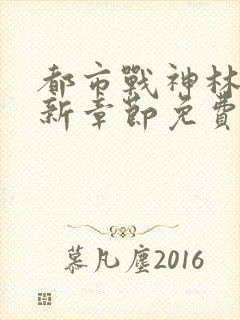 都市戰神林
新章節免費
慕凡塵2016